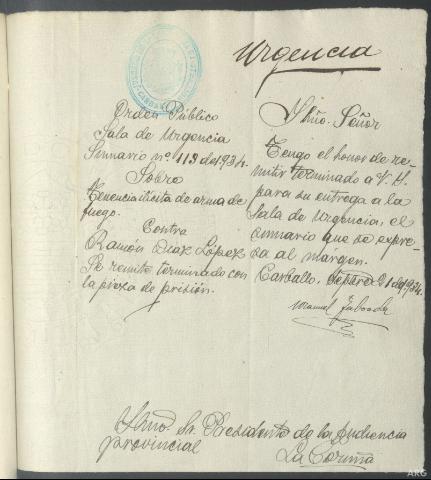 Urgencia
Orden Público
Sala de Urgencia
Sumario nº 113 de 1934.
Sobre
Tenencia ilícita de arma de
fuego.
Contra
Ramón Diaz López
Se remite terminado con
la pieza de prisión.
Ilmo. Señor
Tengo el honor de re-
mitir terminado a V. S.
para su entrega a la
Sala de Urgencia, el
sumario que se expre-
sa al márgen.
Carballo, 21 de 1934.
Manuel Taboada
Ilmo Sr. Presidente de la Audiencia
provincial
La Coruña
ARG